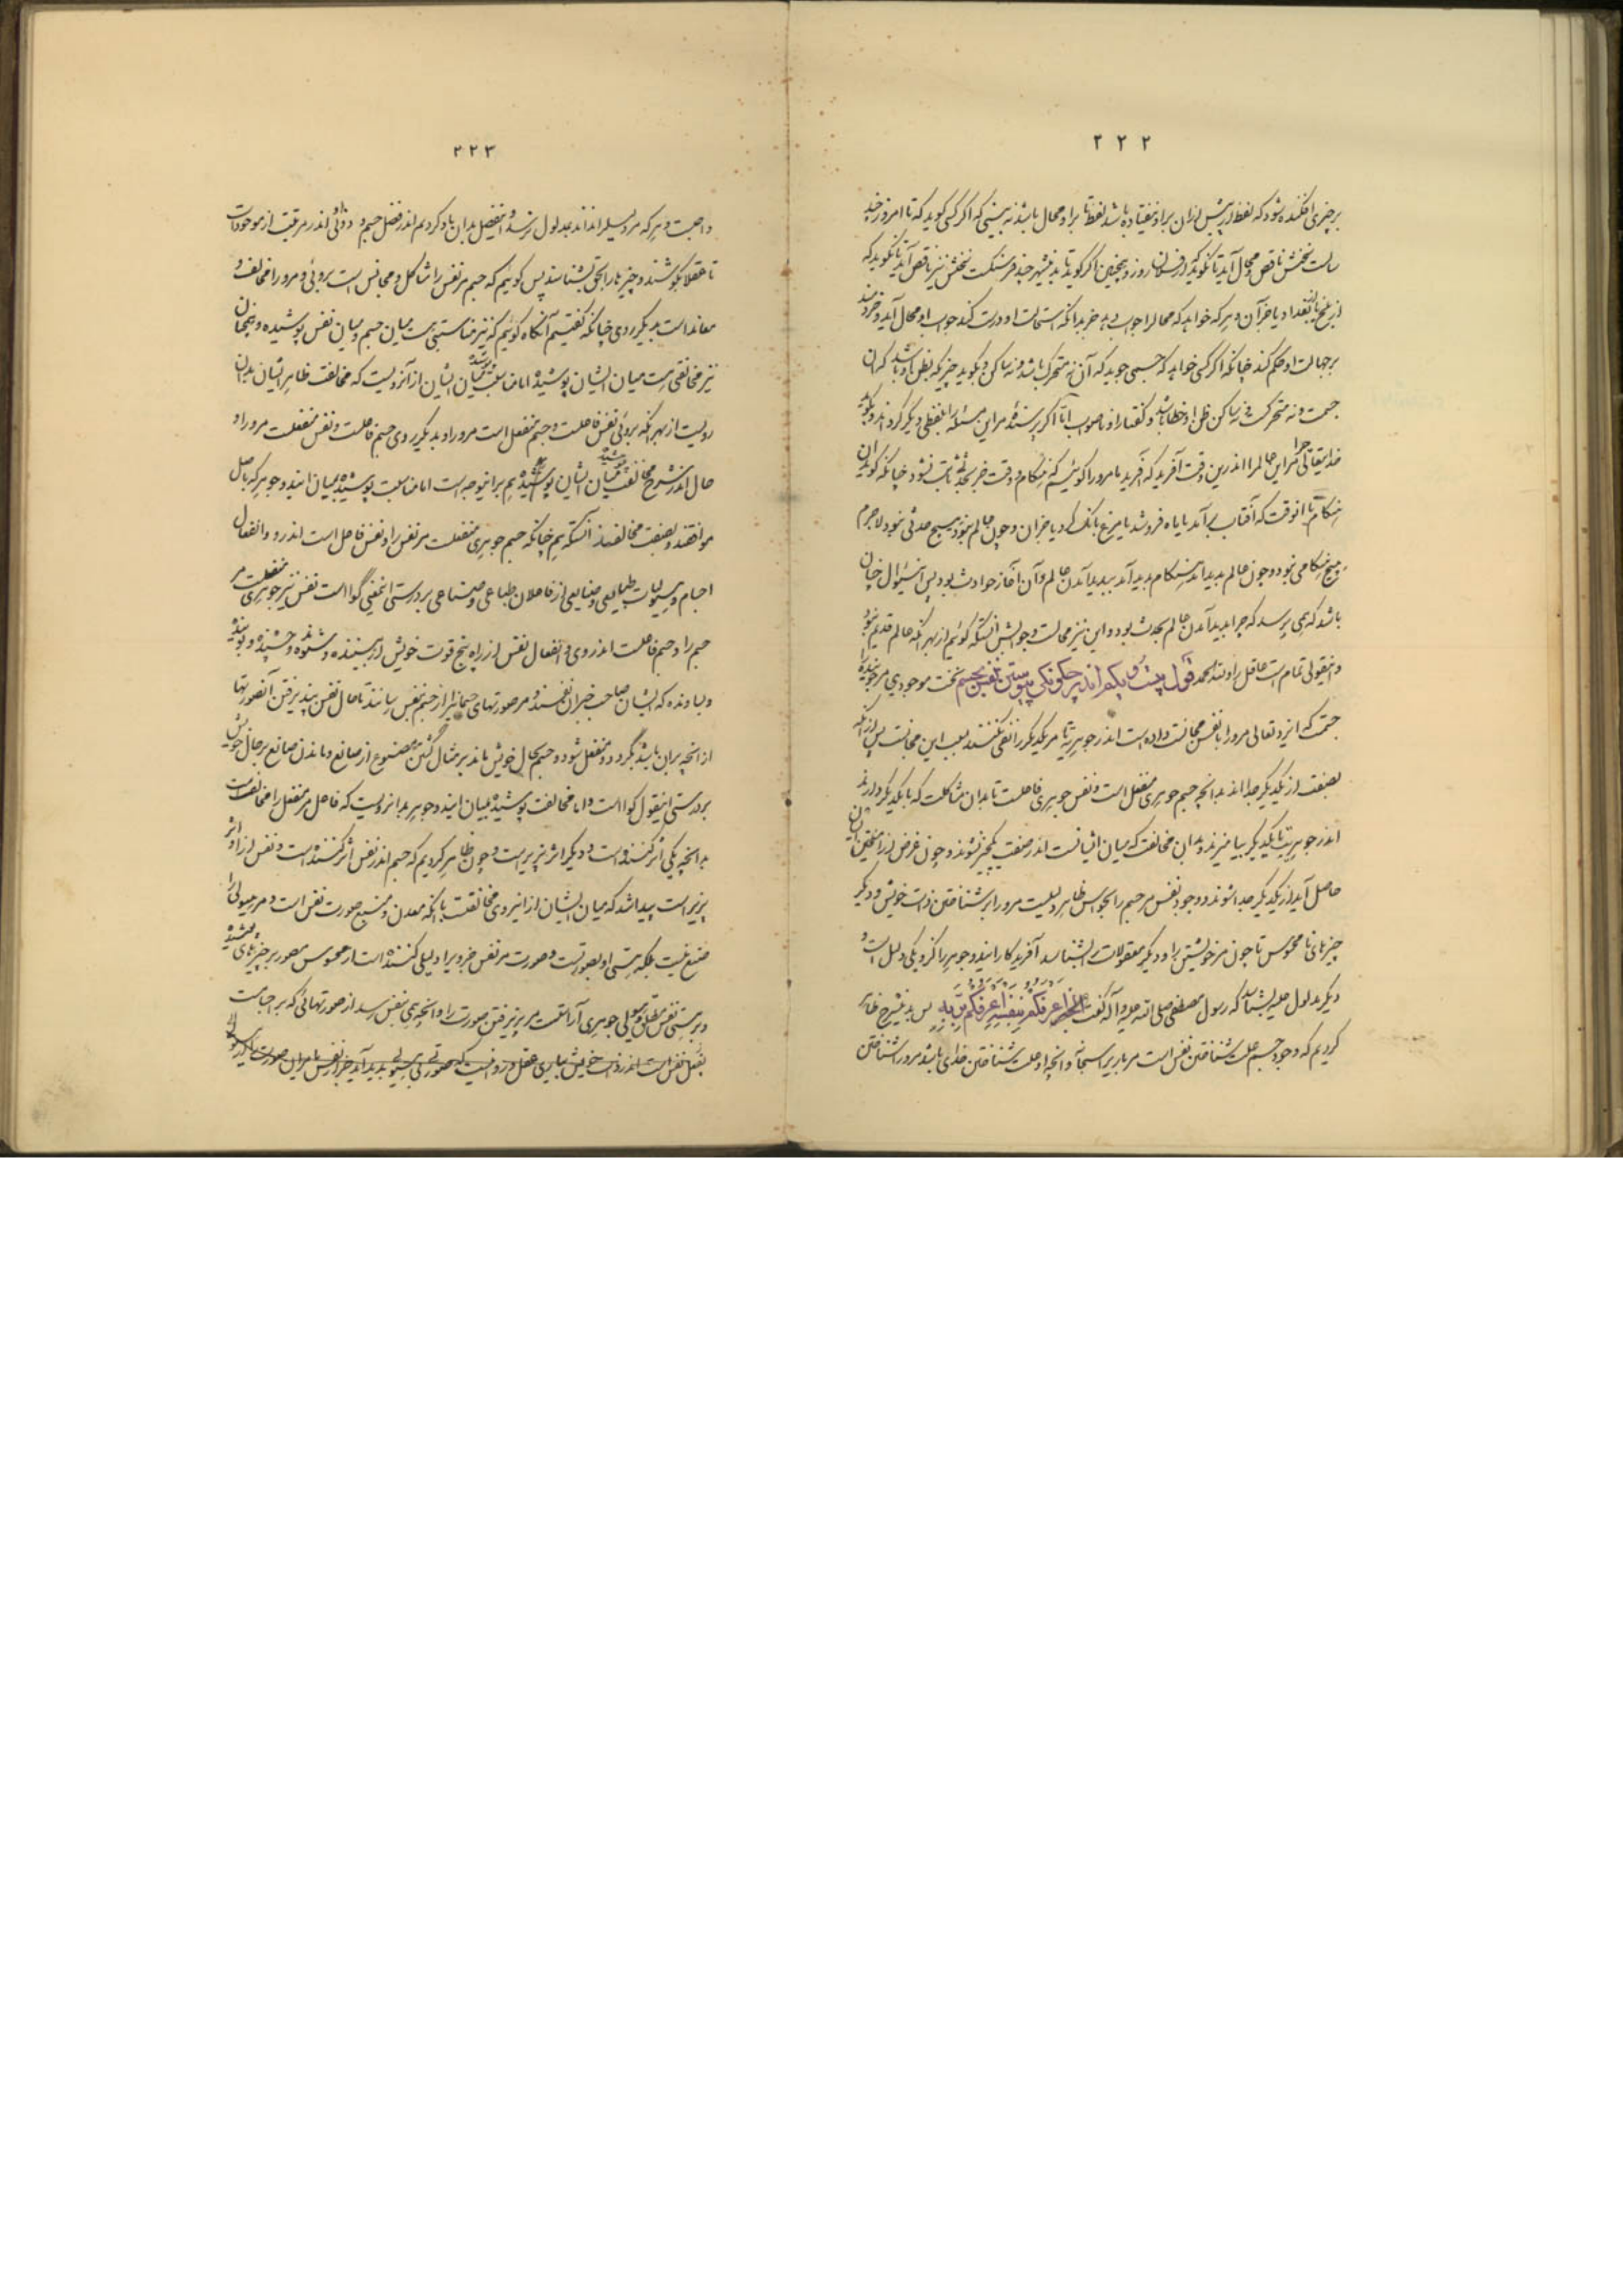 ۲۲۲
برچیزی افکنده شود که لفظ از پیش ازان براو نیفتاده باشد لفظ تا براو محال باشد نه بینی که اگر کسی گوید که تا امروز چند
سالست سخنش ناقص و محال آید تا نگوید که از فلان روز و همچنین اگر گوید تا بدین شهر چند فرسنگست سخنش نیز ناقص آید تا نگوید که
از بلخ یا از بغداد یا جز آن و هر که خواهد که محالرا جواب دهد جز بدانکه استحالت او درست کند جواب او محال آید و خردمند
بر جهالت او حکم کند چنانکه اگر کسی خواهد که جسمی جوید که آن نه متحرک باشد و نه ساکن و بگوید چیزیکه بظن او باشد که آن
جسمت و نه متحرکست و نه ساکن ظن او خطا باشد و گفتار او ناصواب اما اگر پرسنده مر این مسئله را بلفظی دیگر گرداند و بگوید
خدایتعالی چرا مر این عالمرا اندرین وقت آفرید که آفرید ما مرورا گوئیم که هنگام و وقت جز بحدثی ثابت نشود چنانکه گویند آن
هنگام تا انوقت که آفتاب بر آمد یا ماه فرو شد یا مرغ بانک کرد یا جز آن و چون عالم نبود هیچ حدثی نبود لاجرم
هیچ هنگامی نبود و چون عالم پدید آمد هنگام پدید آمد پدید آمدن عالم و آن آغاز حوادث بود پس این سئوال چنان
باشد که همی پرسد که چرا پدید آمدن عالم بحدث بود و این نیز محالست و جوابش آنستکه گوئیم از بهر آنکه عالم قدیم نبود
و اینقول تمام است عاقل را و لله الحمد قول بیست و یکم اندر چگونگی پیوستن نفس بجسم نخست موجودی مر جوینده را
جسمت که ایزد تعالی مرورا با نفس مجانست داده است اندر جوهریة تا مر یکدیگر را نفی نکنند بسبب این مجانست پس از آنکه
بصفت از یکدیگر جدا اند بدانچه جسم جوهری منفعل است و نفس جوهری فاعلست تا بدان مشاکلت که با یکدیگر دارند
اندر جوهریت با یکدیگر بیامیزند و بدان مخالفت که میان ایشانست اندر صفت یکچیز نشوند و چون غرض از آمیختن ایشان
حاصل آید از یکدیگر جدا شوند و وجود نفس مر جسم را بحواس ظاهر دلیلست مرورا بر شناختن ذات خویش و دیگر
چیزهای نامحسوس تا چون مر خویشتن را و دیگر معقولات را بشناسد آفریدگار ایندو جوهر را کزو یکی دلیل است و
دیگر مدلول علیه بشناسد که رسول مصطفی صلی الله علیه و آله گفت اعرفکم بنفسه اعرفکم بربه پس بدین شرح ظاهر
کردیم که وجود جسم علت شناختن نفس است مر باریرا سبحانه و آنچه او علت شناختن خدای باشد مرورا شناختن
۲۲۳
واجبست و هر که مر وسیلترا نداند بمدلول نرسد و این فصل بدان یاد کردیم اندر فضل جسم و دوئی او اندر مرتبت از موجودات
تا عقلا بکوشند و چیزها را بحق بشناسند پس گوئیم که جسم مر نفس را مشاکل و مجانس است بروئی و مرورا مخالف و
معانداست بدیگر روی چنانکه گفتیم آنگاه گوئیم که نیز مناسبتی است میان جسم و میان نفس پوشیده و همچنان
نیز مخالفتی است میان ایشان پوشیده اما مناسبت پوشیده میان ایشان از آنرویست که مخالفت ظاهر ایشان بدان
رویست از بهر آنکه بروئی نفس فاعلست و جسم منفعل است مرورا و بدیگر روی جسم فاعلست و نفس منفعلست مرورا و
حال اندر شرح مخالفت میان ایشان پوشیده هم براینوجه است اما مناسبت پوشیده میان ایندو جوهر که باصل
موافقند و بصفت مخالفند آنستکه هم چنانکه جسم جوهری منفعلست مر نفس را و نفس فاعل است اندرو و انفعال
اجسام و هیولیات طبایعی و صنایعی از فاعلان طباعی و صناعی بر درستی اینمعنی گوا است نفس نیز جوهری منفعلست مر
جسم را و جسم فاعلست اندر وی و انفعال نفس از راه پنج قوت خویش از بیننده و شنونده و چشنده و بوینده
و بساونده که ایشان صاحب خبران نفسند و مر صورتهای جسمانی را از جسم بنفس رسانند تا حال نفس بپذیرفتن آنصورتها
از انچه بران باشد بگردد و منفعل شود و جسم بحال خویش ماند بر مثال گشتن مصنوع از صانع و ماندن صانع بر حال خویش
بر درستی اینقول گوا است و اما مخالفت پوشیده میان ایندو جوهر بدانرویست که فاعل مر منفعل را مخالفست
بدانچه یکی اثر کننده است و دیگر اثر پذیر است و چون ظاهر کردیم که جسم اندر نفس اثر کننده است و نفس از او اثر
پذیر است پیدا شد که میان ایشان از این روی مخالفتست با آنکه معدن و منبع صورت نفس است و مر هیولی را
صنع نیست بلکه هستی او بصورتست و صورت مر نفس جزویرا دلیلی کننده است از محسوس مصور بر چیزهای
و بر هستی نفس مطلق و هیولی جوهری آراسته است مر پذیرفتن صورت را و آنچه همی بنفس رسد از صورتهائی که بر اجسامست
بفعل نفس است اندر ذات خویش بیاری عقل و روا نیست که صورتی بی هیولی پدید آید جز از نفس